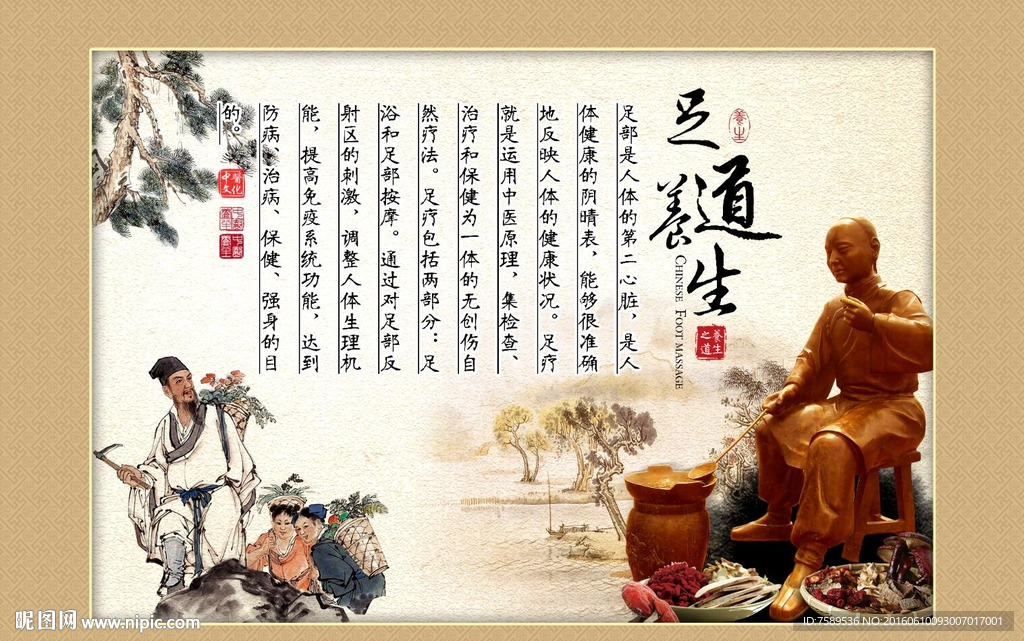 足道养生
CHINESE FOOT MASSAGE
養生
養生之道
足部是人体的第二心脏，是人
体健康的阴晴表，能够很准确
地反映人体的健康状况。足疗
就是运用中医原理，集检查、
治疗和保健为一体的无创伤自
然疗法。足疗包括两部分：足
浴和足部按摩。通过对足部反
射区的刺激，调整人体生理机
能，提高免疫系统功能，达到
防病、治病、保健、强身的目
的。
中醫文化
昵图网 www.nipic.com
ID:7589536 NO:20160610093007017001